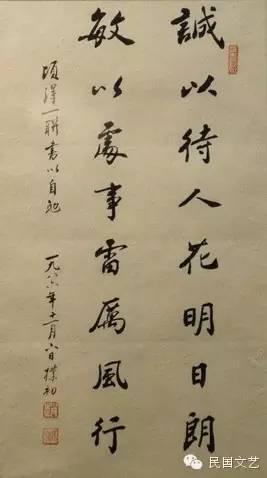 誠以待人花明日朗
敏以處事雷厲風行
頃得一聯書以自勉
一九八六年十一月八日樸初
民国文艺